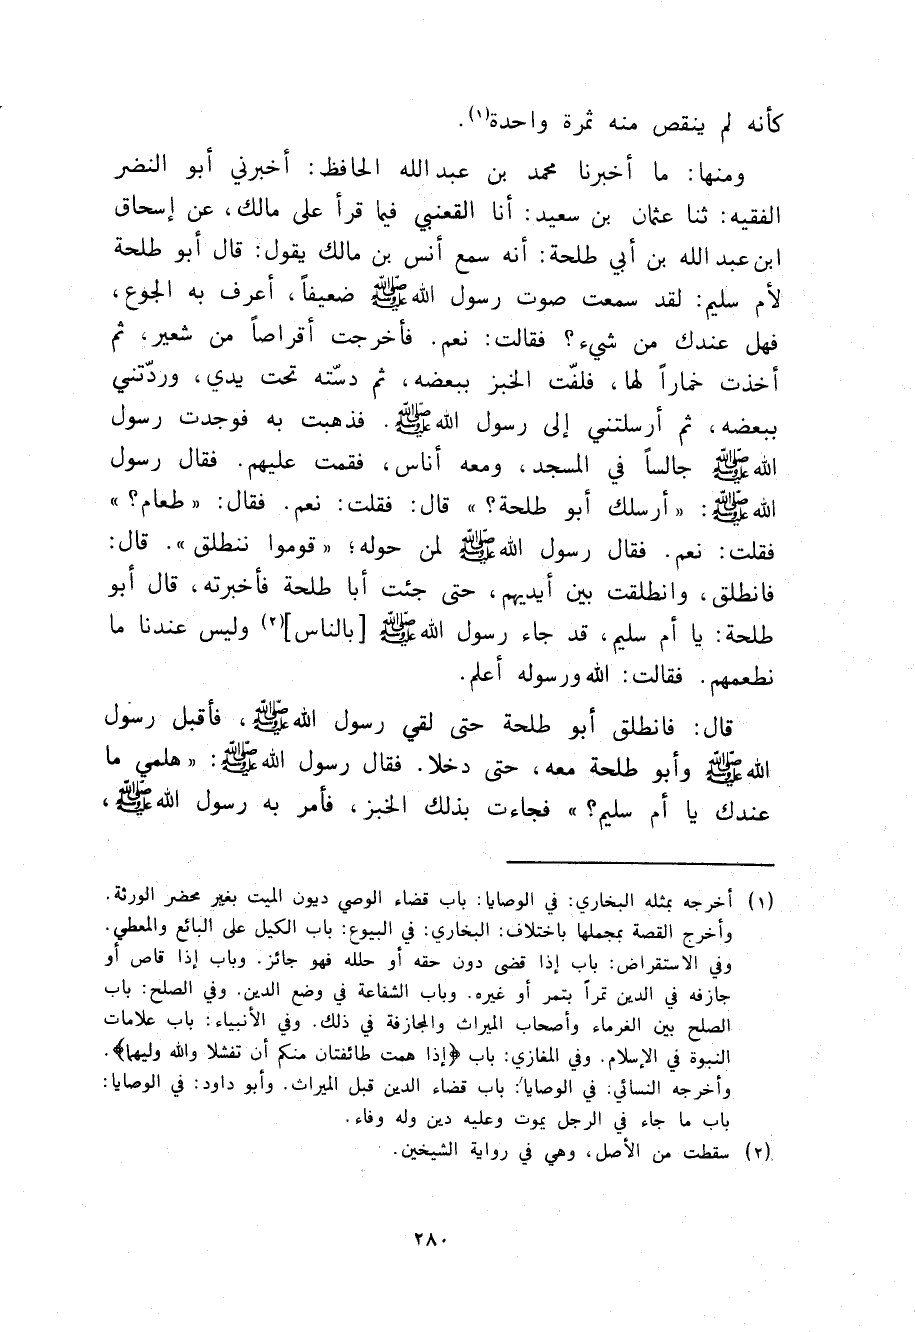 كأنه لم ينقص منه ثمرة واحدة(١).
ومنها: ما أخبرنا محمد بن عبدالله الحافظ: أخبرني أبو النضر
الفقيه: ثنا عثمان بن سعيد: أنا القعنبي فيما قرأ على مالك، عن إسحاق
ابن عبدالله بن أبي طلحة: أنه سمع أنس بن مالك يقول: قال أبو طلحة
لأم سليم: لقد سمعت صوت رسول الله ﷺ ضعيفاً، أعرف به الجوع،
فهل عندك من شيء؟ فقالت: نعم. فأخرجت أقراصاً من شعير، ثم
أخذت خماراً لها، فلفّت الخبز ببعضه، ثم دسّته تحت يدي، وردّتني
ببعضه، ثم أرسلتني إلى رسول الله ﷺ. فذهبت به فوجدت رسول
الله ﷺ جالساً في المسجد، ومعه أناس، فقمت عليهم. فقال رسول
الله ﷺ: «أرسلك أبو طلحة؟» قال: فقلت: نعم. فقال: «طعام؟»
فقلت: نعم. فقال رسول الله ﷺ لمن حوله؛ «قوموا ننطلق». قال:
فانطلق، وانطلقت بين أيديهم، حتى جئت أبا طلحة فأخبرته، قال أبو
طلحة: يا أم سليم، قد جاء رسول الله ﷺ [بالناس](٢) وليس عندنا ما
نطعمهم. فقالت: الله ورسوله أعلم.
قال: فانطلق أبو طلحة حتى لقي رسول الله ﷺ، فأقبل رسول
الله ﷺ وأبو طلحة معه، حتى دخلا. فقال رسول الله ﷺ: «هلمي ما
عندك يا أم سليم؟» فجاءت بذلك الخبز، فأمر به رسول الله ﷺ،
(١) أخرجه بمثله البخاري: في الوصايا: باب قضاء الوصي ديون الميت بغير محضر الورثة.
وأخرج القصة بمجملها باختلاف: البخاري: في البيوع: باب الكيل على البائع والمعطي.
وفي الاستقراض: باب إذا قضى دون حقه أو حلله فهو جائز. وباب إذا قاص أو
جازفه في الدين تمراً بتمر أو غيره. وباب الشفاعة في وضع الدين. وفي الصلح: باب
الصلح بين الغرماء وأصحاب الميراث والمجازفة في ذلك. وفي الأنبياء: باب علامات
النبوة في الإسلام. وفي المغازي: باب ﴿إذا همت طائفتان منكم أن تفشلا والله وليهما﴾.
وأخرجه النسائي: في الوصايا: باب قضاء الدين قبل الميراث. وأبو داود: في الوصايا:
باب ما جاء في الرجل يموت وعليه دين وله وفاء.
(٢) سقطت من الأصل، وهي في رواية الشيخين.
٢٨٠